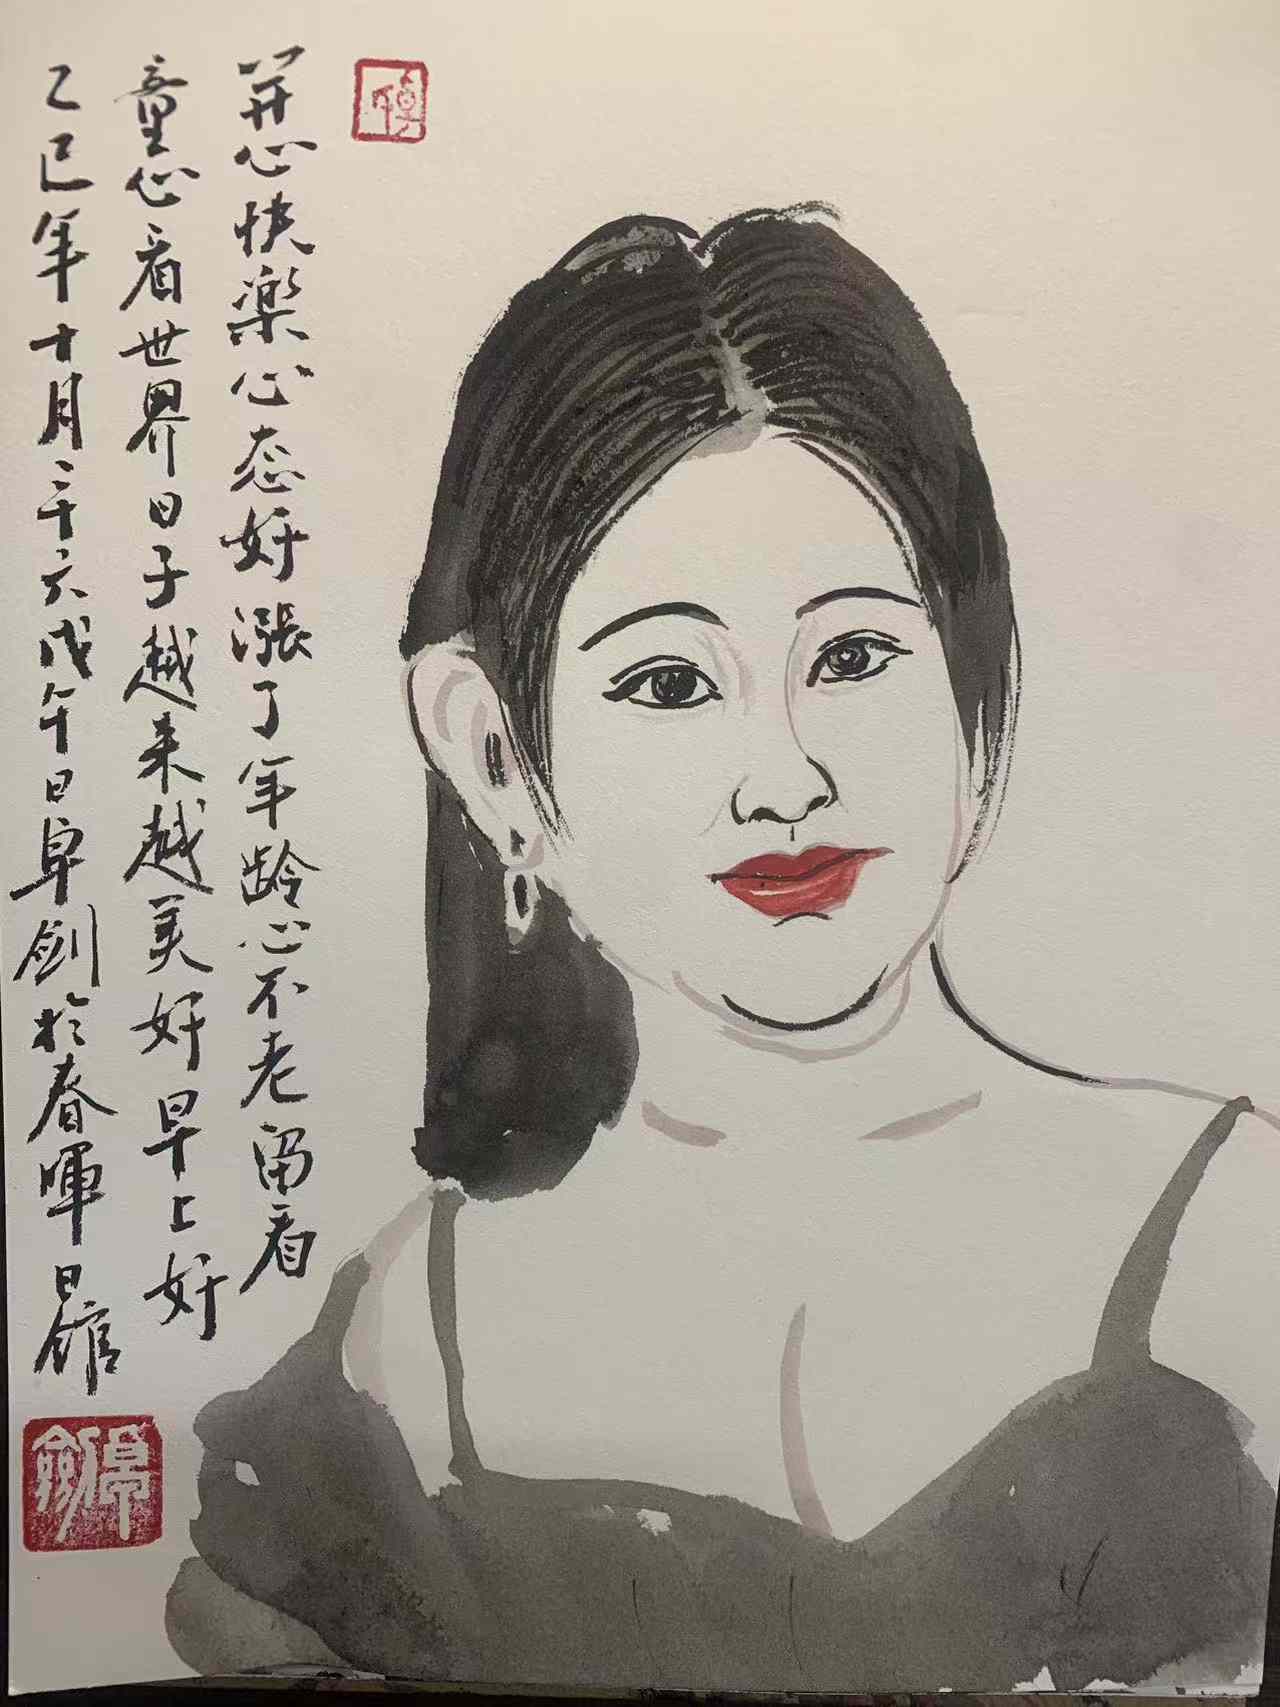 开心快楽心态好漲了年龄心不老留着
童心看世界日子越来越美好早上好
乙巳年十月二十六戊午日卓剑於春暉日館